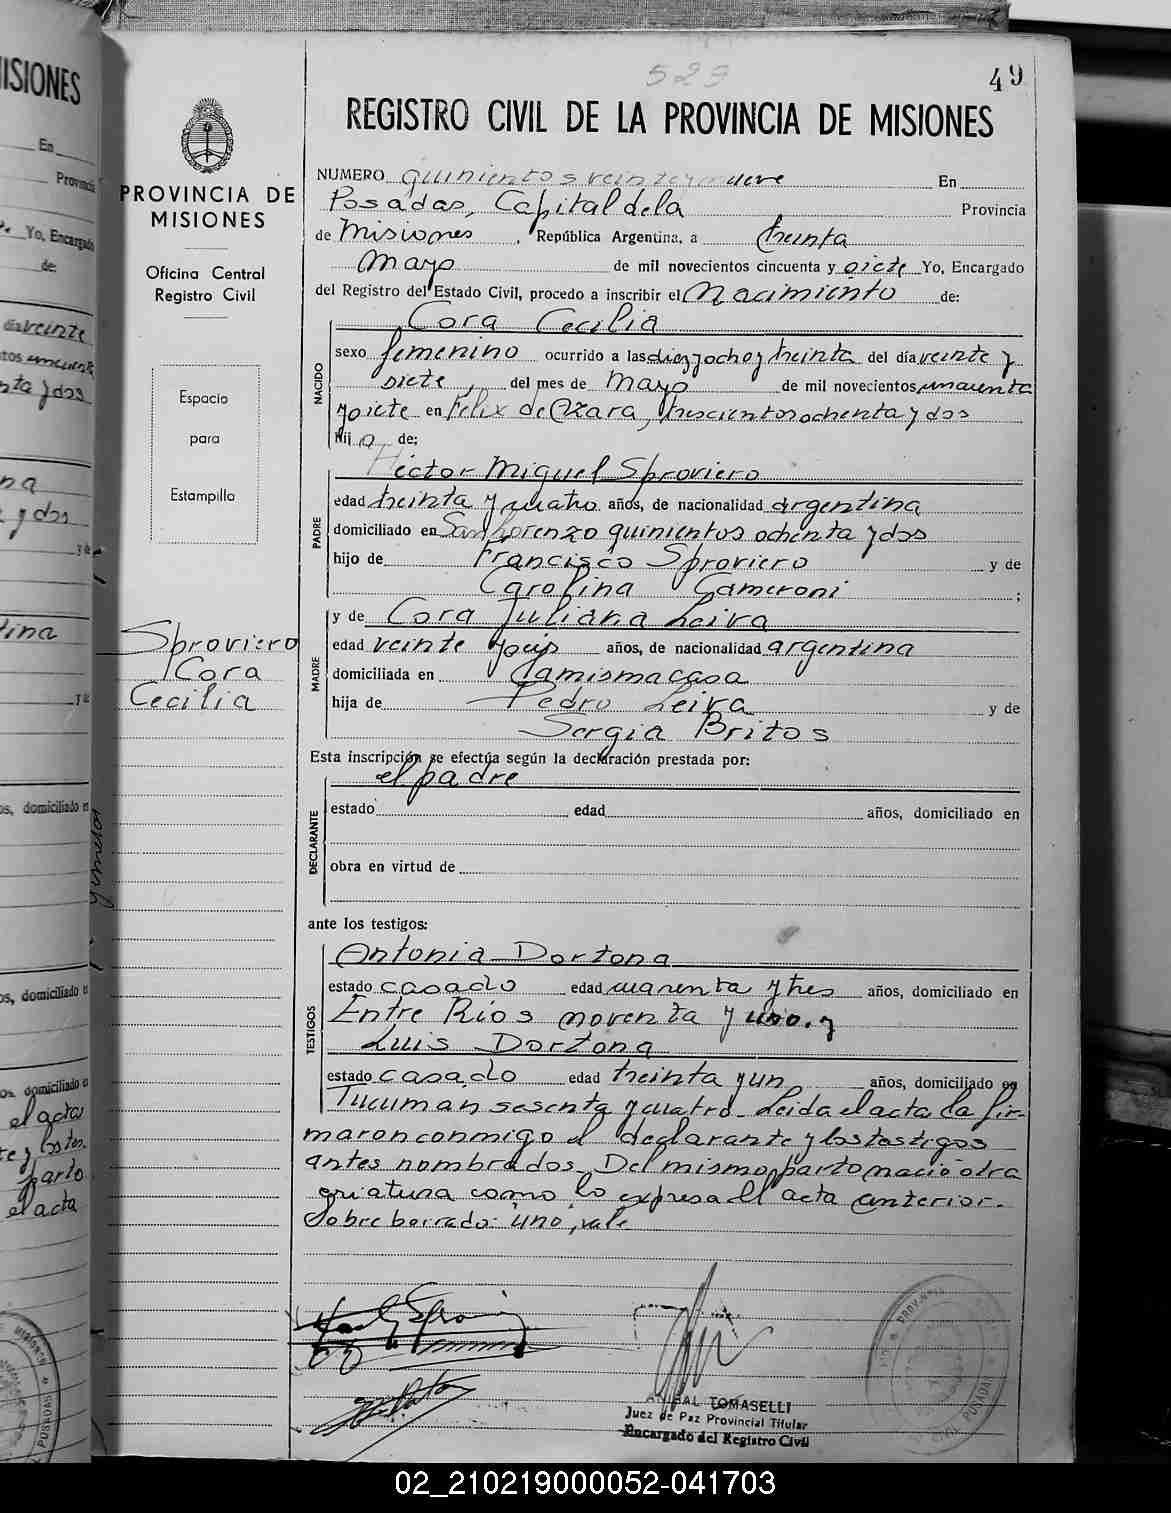 529
49
REGISTRO CIVIL DE LA PROVINCIA DE MISIONES
PROVINCIA DE
MISIONES
Oficina Central
Registro Civil
Espacio
para
Estampilla
Sproviero
Cora
Cecilia
NUMERO quinientos veintinueve En
Posadas, Capital de la Provincia
de Misiones, República Argentina, a treinta
Mayo de mil novecientos cincuenta y siete Yo, Encargado
del Registro del Estado Civil, procedo a inscribir el Nacimiento de:
Cora Cecilia
NACIDO
sexo femenino ocurrido a las diez y ocho y treinta del día veinte y
siete, del mes de Mayo de mil novecientos cincuenta
y siete en Felix de Azara, trescientos ochenta y dos
Hija de:
Héctor Miguel Sproviero
PADRE
edad treinta y cuatro años, de nacionalidad argentina
domiciliado en San Lorenzo quinientos ochenta y dos
hijo de Francisco Sproviero y de
Carolina Cameroni;
MADRE
y de Cora Juliana Leiva
edad veinte y seis años, de nacionalidad argentina
domiciliada en la misma casa
hija de Pedro Leiva y de
Sergia Britos
Esta inscripción se efectúa según la declaración prestada por:
el padre
DECLARANTE
estado edad años, domiciliado en
obra en virtud de
ante los testigos:
TESTIGOS
Antonia Dortona
estado casado edad cuarenta y tres años, domiciliado en
Entre Rios noventa y uno. y
Luis Dortona
estado casado edad treinta y un años, domiciliado en
Tucuman sesenta y cuatro. Leida el acta la fir-
maron conmigo el declarante y los testigos
antes nombrados. Del mismo parto nació otra
criatura como lo expresa el acta anterior.
Sobre borrado: "uno", vale
ANIBAL TOMASELLI
Juez de Paz Provincial Titular
Encargado del Registro Civil
02_210219000052-041703